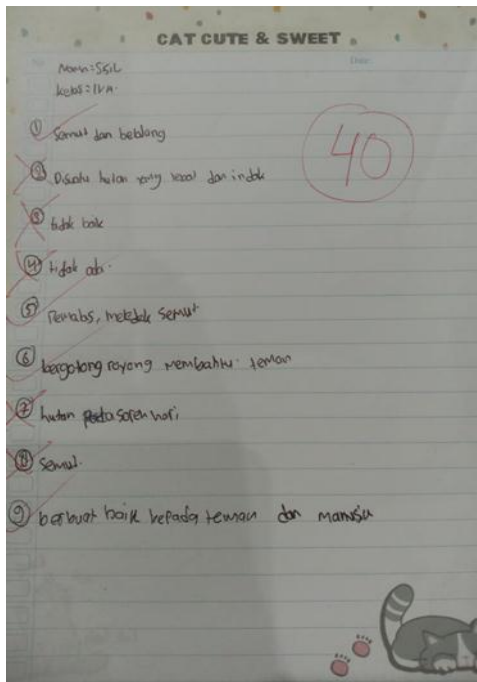 CAT CUTE & SWEET
Date:
Nama: SSIL
Kelas: IVA
40
① Semut dan beblang
② Disuatu hutan yang lebat dan indah
③ tidak baik
④ tidak ada.
⑤ semut
⑥ bergotong royong membantu teman
⑦ hutan pada soreh hari
⑧ Semut.
⑨ berbuat baik kepada teman dan manusia